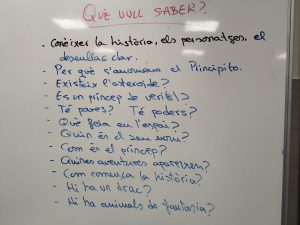 QUÈ VULL SABER?
- Conèixer la història, els personatges, el
desenllaç clar.
- Per què s'anomena el Príncipito.
- Existeix l'asteroide?
- És un príncep de veritat?
- Té pares? Té poders?
- Què feia en l'espai?
- Quin és el seu nom?
- Com és el príncep?
- Quines aventures apareixen?
- Com comença la història?
- Hi ha un drac?
- Hi ha animals de fantasia?